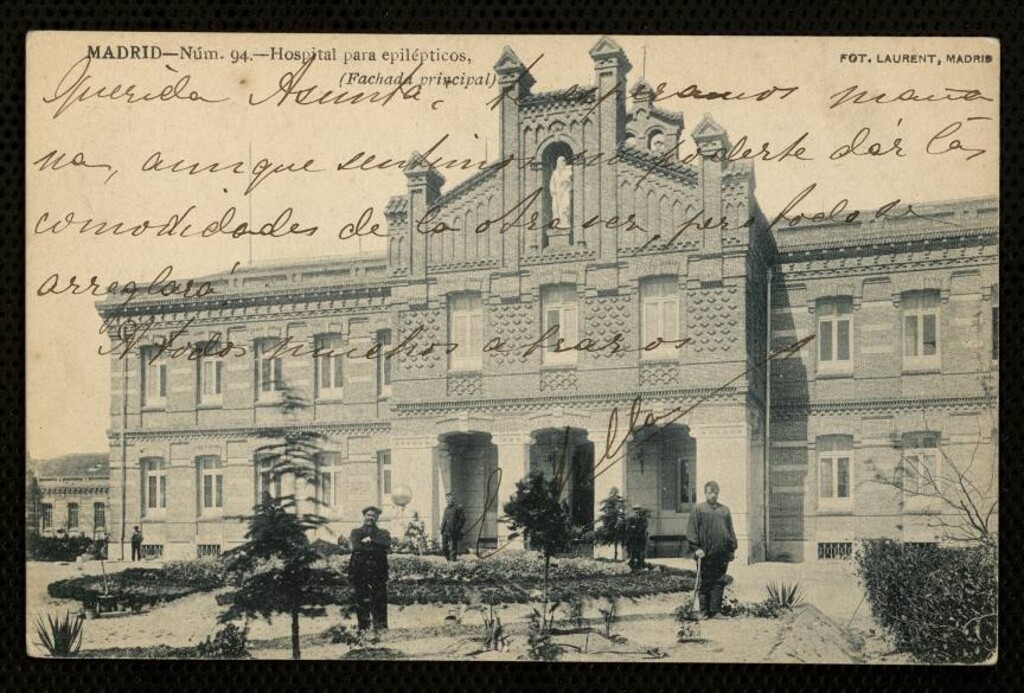 MADRID—Núm. 94.—Hospital para epilépticos,
(Fachada principal)
FOT. LAURENT, MADRID
Querida Asunta, te esperamos maña
na, aunque sentimos no poderte dár las
comodidades de la otra vez, pero todo se
arreglará.
A todos muchos abrazos